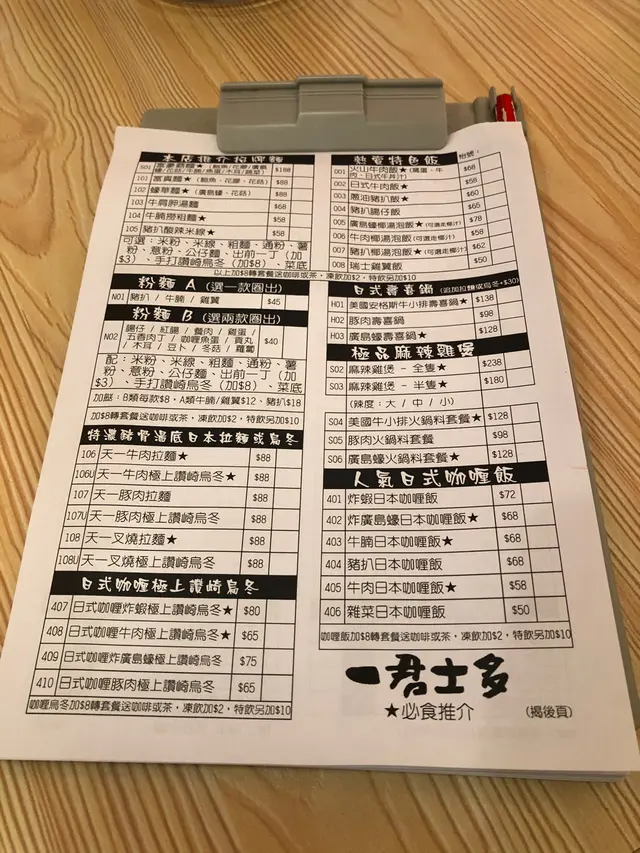 本店推介招牌麵
S01 富豪麵麵★ $188
101 富貴麵★(鮑魚、花膠、花菇) $88
102 蠔華麵★(廣島蠔、花菇) $88
103 牛肩胛湯麵 $68
104 牛腩撈粗麵★ $58
105 豬扒酸辣米線★ $58
可選：米粉、米線、粗麵、通粉、薯
粉、意粉、公仔麵、出前一丁(加
$3)、手打讚崎烏冬(加$8)、菜底
以上加$8轉套餐送咖啡或茶，凍飲加$2，特飲另加$10
粉麵 A (選一款圈出)
N01 豬扒 / 牛腩 / 雞翼 $45
粉麵 B (選兩款圈出)
N02 腸仔 / 紅腸 / 餐肉 / 雞蛋 /
五香肉丁 / 咖喱魚蛋 / 貢丸
/ 木耳 / 豆卜 / 冬菇 / 蘿蔔 $40
配：米粉、米線、粗麵、通粉、薯
粉、意粉、公仔麵、出前一丁(加
$3)、手打讚崎烏冬(加$8)、菜底
加餸：B類每款$8，A類牛腩/雞翼$12、豬扒$18
加$8轉套餐送咖啡或茶，凍飲加$2，特飲另加$10
特濃豬骨湯底日本拉麵或烏冬
106 天一牛肉拉麵★ $88
106U 天一牛肉極上讚崎烏冬★ $88
107 天一豚肉拉麵 $88
107U 天一豚肉極上讚崎烏冬 $88
108 天一叉燒拉麵★ $88
108U 天一叉燒極上讚崎烏冬 $88
日式咖喱極上讚崎烏冬
407 日式咖喱炸蝦極上讚崎烏冬★ $80
408 日式咖喱牛肉極上讚崎烏冬★ $65
409 日式咖喱炸廣島蠔極上讚崎烏冬 $75
410 日式咖喱豚肉極上讚崎烏冬 $65
咖喱烏冬加$8轉套餐送咖啡或茶，凍飲加$2，特飲另加$10
熱賣特色飯
001 火山牛肉飯★(窩蛋、牛
肉、日式牛丼汁) $68
002 日式牛肉飯★ $58
003 蔥油豬扒飯★ $60
004 豬扒腸仔飯 $65
005 廣島蠔椰湯泡飯★(可選走椰汁) $78
006 牛肉椰湯泡飯★(可選走椰汁) $58
007 豬扒椰湯泡飯★(可選走椰汁) $62
008 瑞士雞翼飯 $50
日式壽喜鍋(追加拉麵或烏冬+$30)
H01 美國安格斯牛小排壽喜鍋★ $138
H02 豚肉壽喜鍋 $98
H03 廣島蠔壽喜鍋★ $128
極品麻辣雞煲
S02 麻辣雞煲 - 全隻★ $238
S03 麻辣雞煲 - 半隻★ $180
(辣度：大 / 中 / 小)
S04 美國牛小排火鍋料套餐★ $128
S05 豚肉火鍋料套餐 $98
S06 廣島蠔火鍋料套餐★ $128
人氣日式咖喱飯
401 炸蝦日本咖喱飯 $72
402 炸廣島蠔日本咖喱飯★ $68
403 牛腩日本咖喱飯★ $68
404 豬扒日本咖喱飯 $68
405 牛肉日本咖喱飯★ $58
406 雜菜日本咖喱飯 $50
咖喱飯加$8轉套餐送咖啡或茶，凍飲加$2，特飲另加$10
一君士多
★必食推介
(揭後頁)